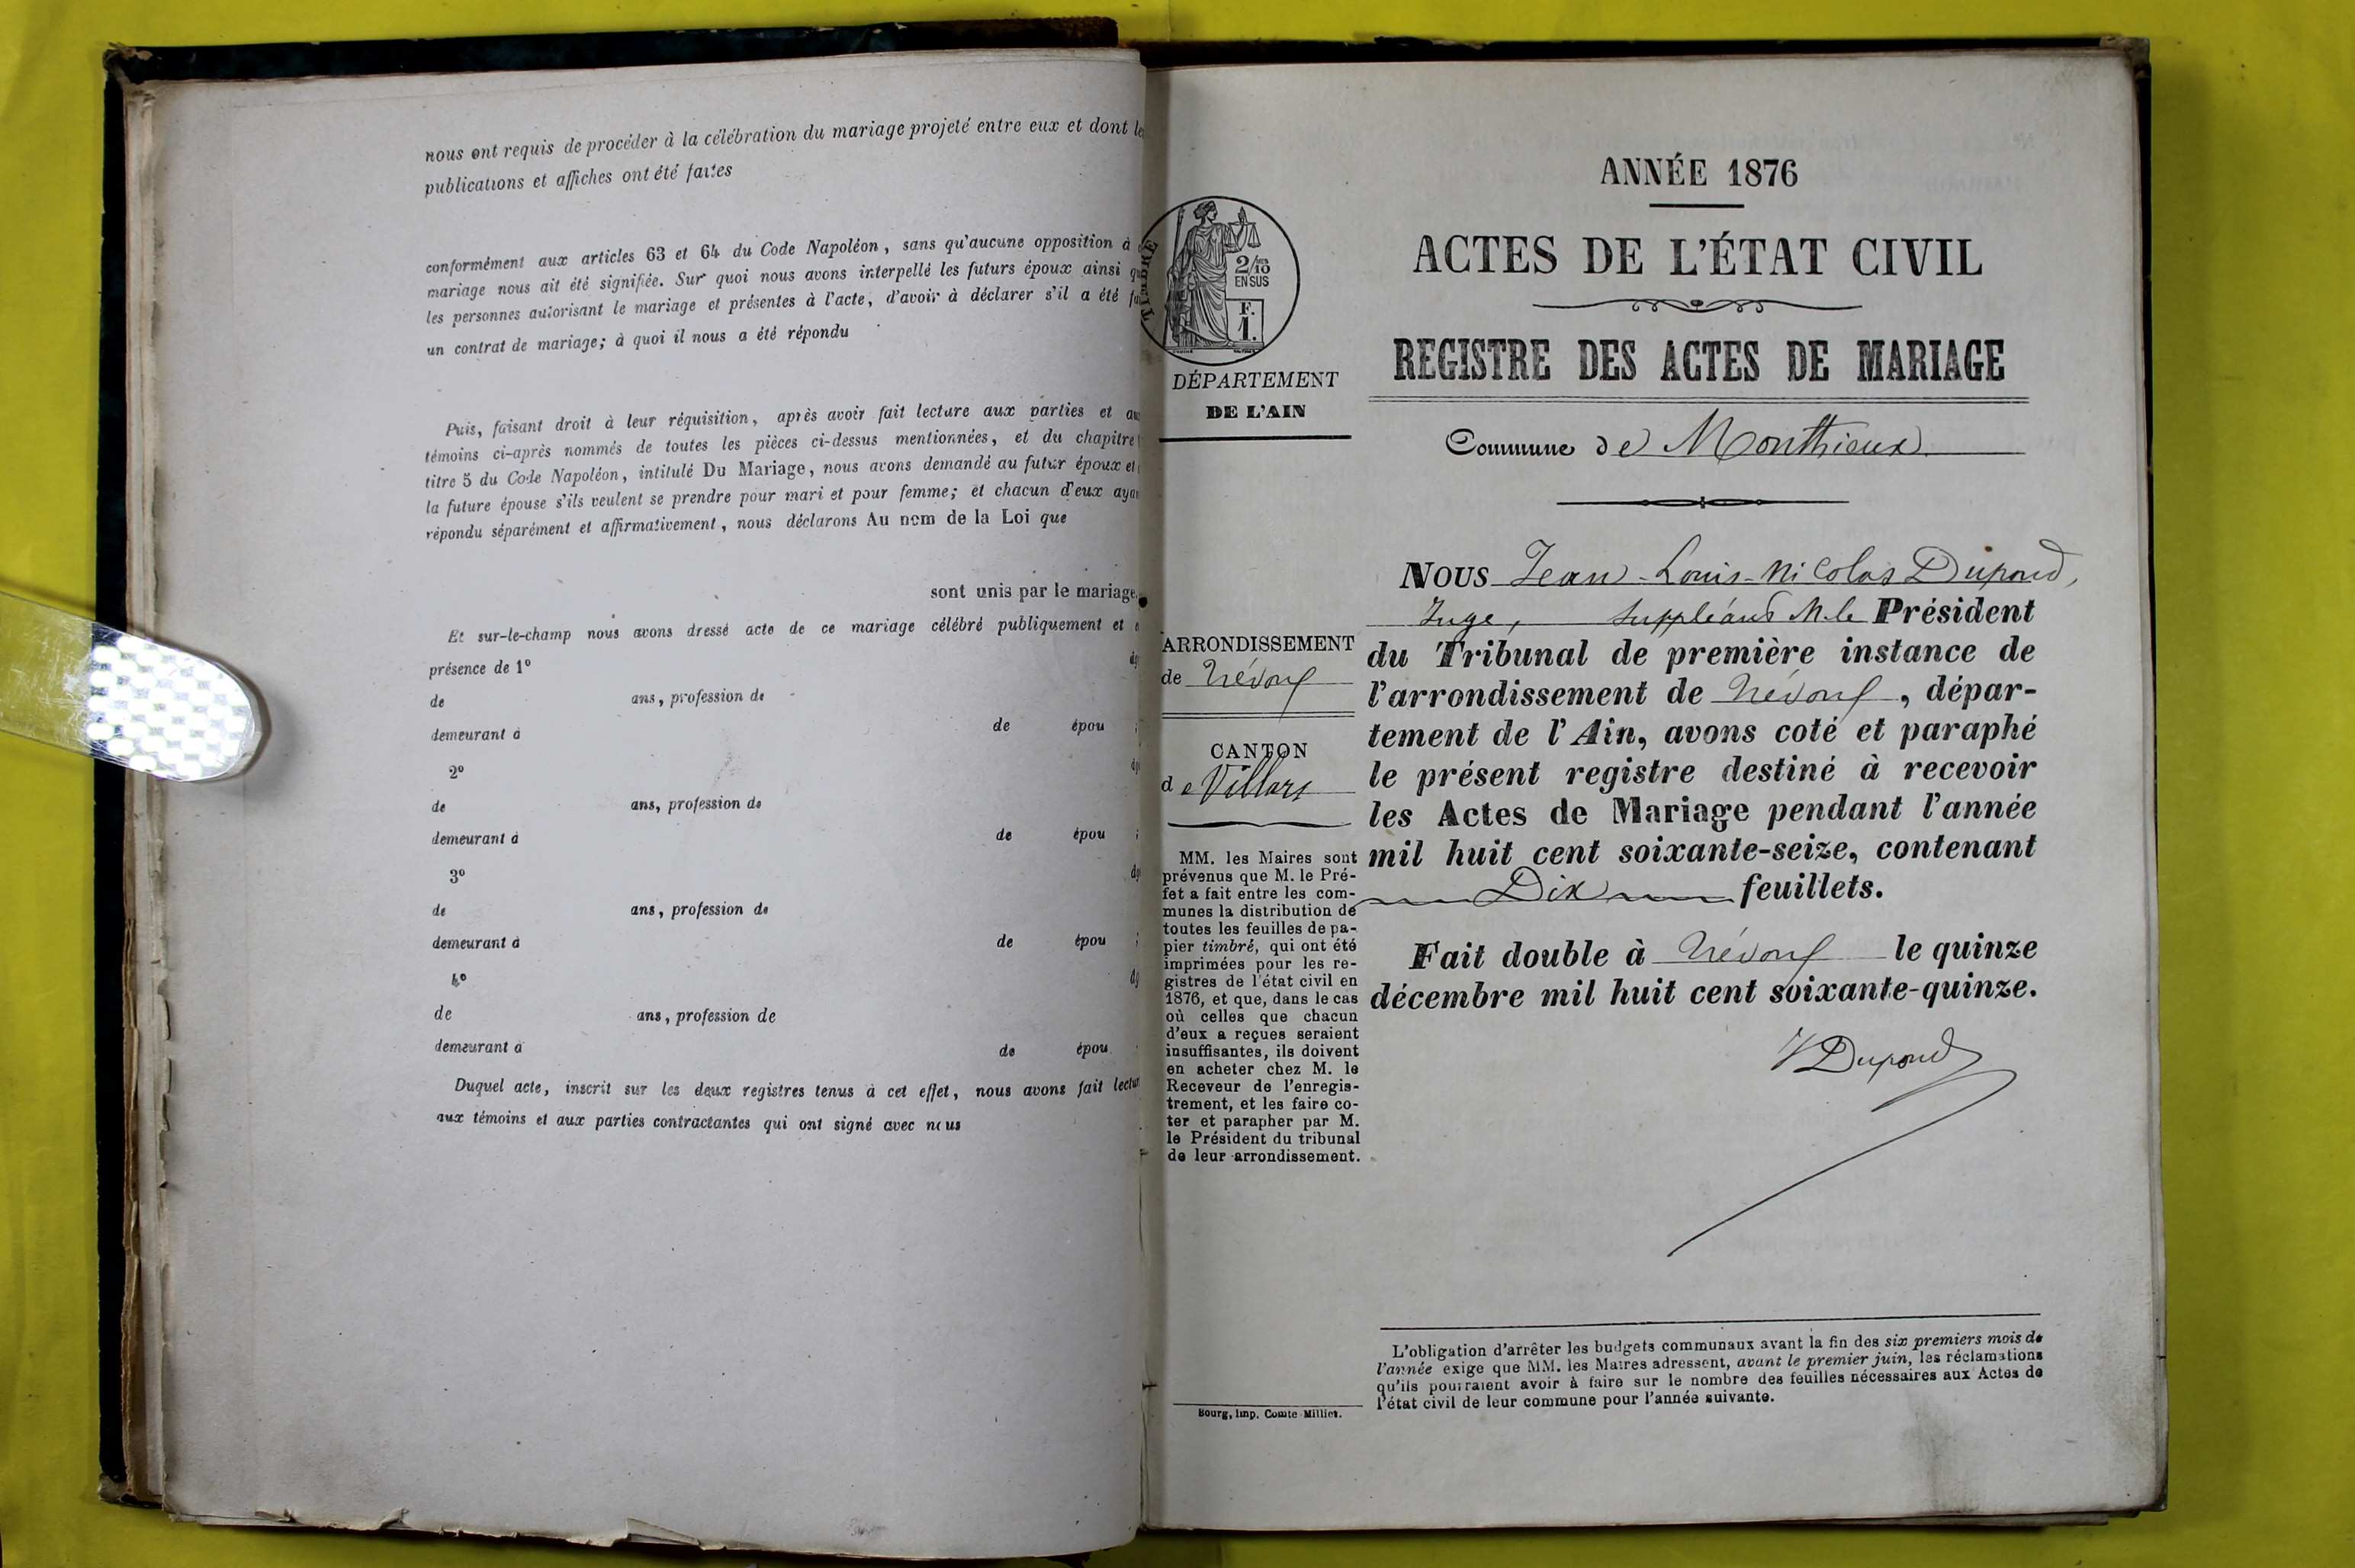 nous ont requis de procéder à la célébration du mariage projeté entre eux et dont le
publications et affiches ont été faites
conformément aux articles 63 et 64 du Code Napoléon, sans qu'aucune opposition à
mariage nous ait été signifiée. Sur quoi nous avons interpellé les futurs époux ainsi qu
les personnes autorisant le mariage et présentes à l'acte, d'avoir à déclarer s'il a été fa
un contrat de mariage; à quoi il nous a été répondu
Puis, faisant droit à leur réquisition, après avoir fait lecture aux parties et au
témoins ci-après nommés de toutes les pièces ci-dessus mentionnées, et du chapitre
titre 5 du Code Napoléon, intitulé Du Mariage, nous avons demandé au futur époux et
la future épouse s'ils veulent se prendre pour mari et pour femme; et chacun d'eux aya
répondu séparément et affirmativement, nous déclarons Au nom de la Loi que
sont unis par le mariage.
Et sur-le-champ nous avons dressé acte de ce mariage célébré publiquement et e
présence de 1º
de ans, profession de
demeurant à de épou ;
2º
de ans, profession de
demeurant à de épou ;
3º
de ans, profession de
demeurant à de épou ;
4º
de ans, profession de
demeurant à de épou
Duquel acte, inscrit sur les deux registres tenus à cet effet, nous avons fait lectur
aux témoins et aux parties contractantes qui ont signé avec nous
2/10
EN SUS
F.
1.
DÉPARTEMENT
DE L'AIN
ARRONDISSEMENT
de Trévoux
CANTON
de Villars
MM. les Maires sont
prévenus que M. le Pré-
fet a fait entre les com-
munes la distribution de
toutes les feuilles de pa-
pier timbré, qui ont été
imprimées pour les re-
gistres de l'état civil en
1876, et que, dans le cas
où celles que chacun
d'eux a reçues seraient
insuffisantes, ils doivent
en acheter chez M. le
Receveur de l'enregis-
trement, et les faire co-
ter et parapher par M.
le Président du tribunal
de leur arrondissement.
Bourg, imp. Comte-Milliet.
ANNÉE 1876
ACTES DE L'ÉTAT CIVIL
REGISTRE DES ACTES DE MARIAGE
Commune de Monthieux
NOUS Jean-Louis-Nicolas Dupond,
Juge, suppléant M. le Président
du Tribunal de première instance de
l'arrondissement de Trévoux, dépar-
tement de l'Ain, avons coté et paraphé
le présent registre destiné à recevoir
les Actes de Mariage pendant l'année
mil huit cent soixante-seize, contenant
Dix feuillets.
Fait double à Trévoux le quinze
décembre mil huit cent soixante-quinze.
Dupond
L'obligation d'arrêter les budgets communaux avant la fin des six premiers mois de
l'année exige que MM. les Maires adressent, avant le premier juin, les réclamations
qu'ils pourraient avoir à faire sur le nombre des feuilles nécessaires aux Actes de
l'état civil de leur commune pour l'année suivante.